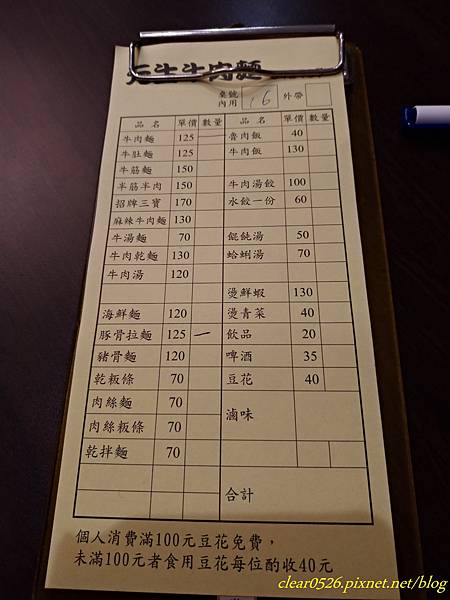 牛肉麵
桌號 內用 16 外帶
品名 單價 數量 品名 單價 數量
牛肉麵 125 魯肉飯 40
牛肚麵 125 牛肉飯 130
牛筋麵 150
半筋半肉 150 牛肉湯餃 100
招牌三寶 170 水餃一份 60
麻辣牛肉麵 130
牛湯麵 70 餛飩湯 50
牛肉乾麵 130 蛤蜊湯 70
牛肉湯 120
燙鮮蝦 130
海鮮麵 120 燙青菜 40
豚骨拉麵 125 一 飲品 20
豬骨麵 120 啤酒 35
乾粄條 70 豆花 40
肉絲麵 70 滷味
肉絲粄條 70
乾拌麵 70
合計
個人消費滿100元豆花免費，
未滿100元者食用豆花每位酌收40元
clear0526.pixnet.net/blog